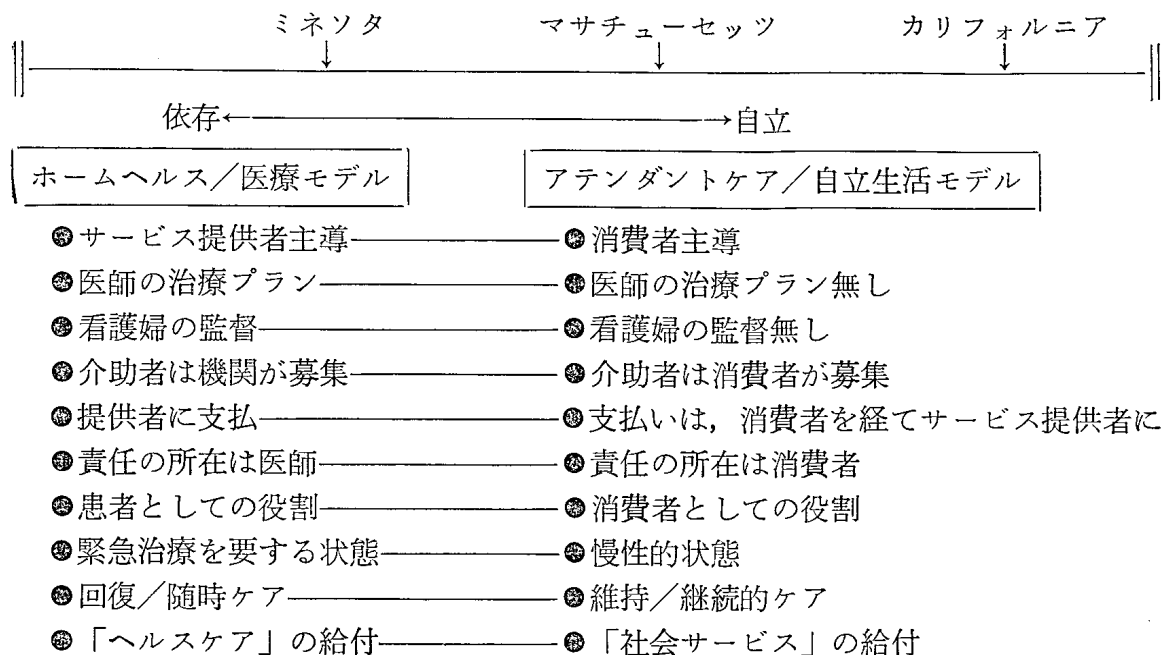 ミネソタ　マサチューセッツ　カリフォルニア
依存←→自立
ホームヘルス／医療モデル　アテンダントケア／自立生活モデル
●サービス提供者主導―●消費者主導
●医師の治療プラン―●医師の治療プラン無し
●看護婦の監督―●看護婦の監督無し
●介助者は機関が募集―●介助者は消費者が募集
●提供者に支払―●支払いは，消費者を経てサービス提供者に
●責任の所在は医師―●責任の所在は消費者
●患者としての役割―●消費者としての役割
●緊急治療を要する状態―●慢性的状態
●回復／随時ケア―●維持／継続的ケア
●「ヘルスケア」の給付―●「社会サービス」の給付